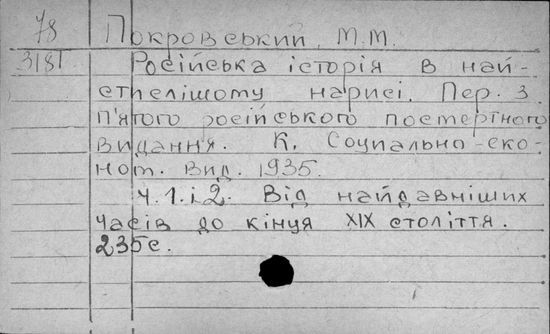 78 Покровський, М.М.
3181 Російська історія в най-
стислішому нарисі. Пер. з
п'ятого російського посмертного
видання. К. Соціально-еко-
ном. вид. 1935.
Ч. 1. і 2. Від найдавніших
часів до кінця XIX століття.
235с.